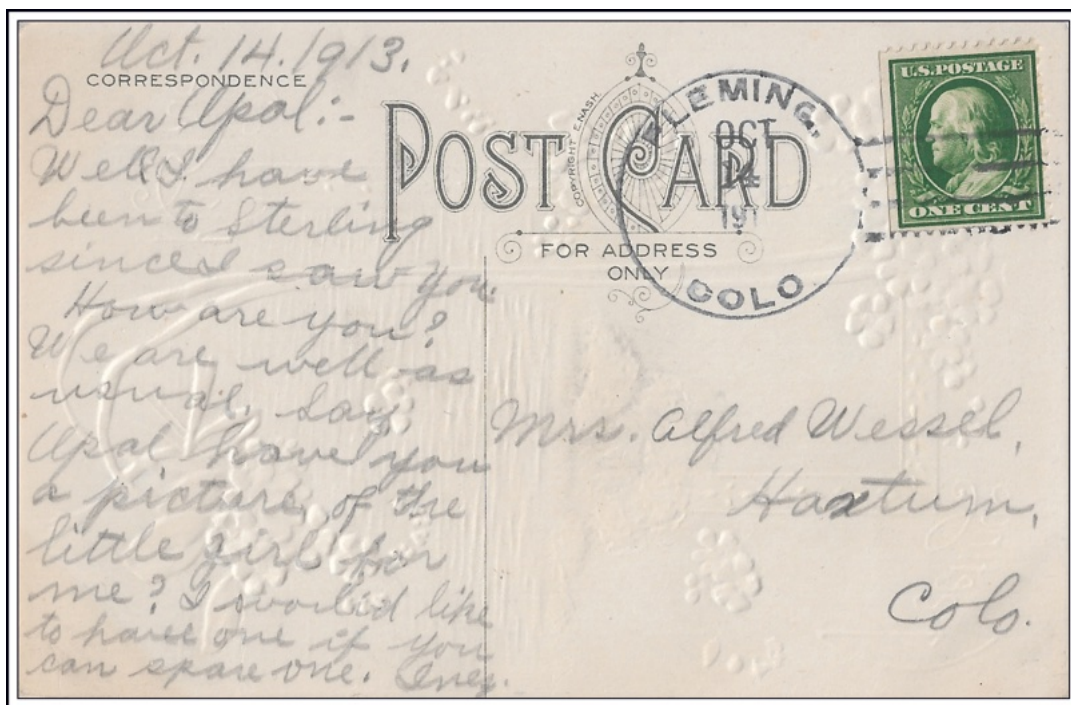 Oct. 14. 1913.
CORRESPONDENCE
Dear Opal:-
Well I have
been to Sterling
since I saw you.
How are you?
We are well as
usual. Say,
Opal, have you
a picture, of the
little girl for
me? I would like
to have one if you
can spare one. Inez.
POST CARD
COPYRIGHT E. NASH.
FOR ADDRESS
ONLY
FLEMING,
OCT
14
191
COLO.
U.S. POSTAGE
ONE CENT
Mrs. Alfred Wessel,
Haxtum,
Colo.